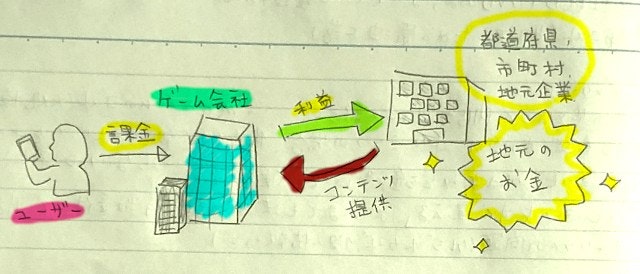 都道府県、
市町村、
地元企業
ゲーム会社
利益
課金
地元の
お金
コンテンツ
提供
ユーザー